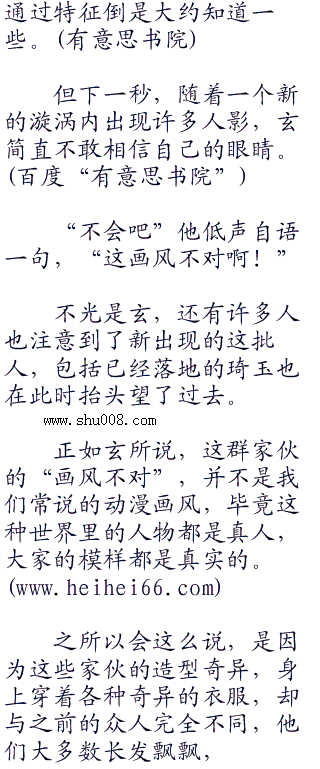 通过特征倒是大约知道一
些。(有意思书院)
但下一秒，随着一个新
的漩涡内出现许多人影，玄
简直不敢相信自己的眼睛。
(百度“有意思书院”)
“不会吧”他低声自语
一句，“这画风不对啊！”
不光是玄，还有许多人
也注意到了新出现的这批
人，包括已经落地的琦玉也
在此时抬头望了过去。
www.shu008.com
正如玄所说，这群家伙
的“画风不对”，并不是我
们常说的动漫画风，毕竟这
种世界里的人物都是真人，
大家的模样都是真实的。
(www.heihei66.com)
之所以会这么说，是因
为这些家伙的造型奇异，身
上穿着各种奇异的衣服，却
与之前的众人完全不同，他
们大多数长发飘飘，